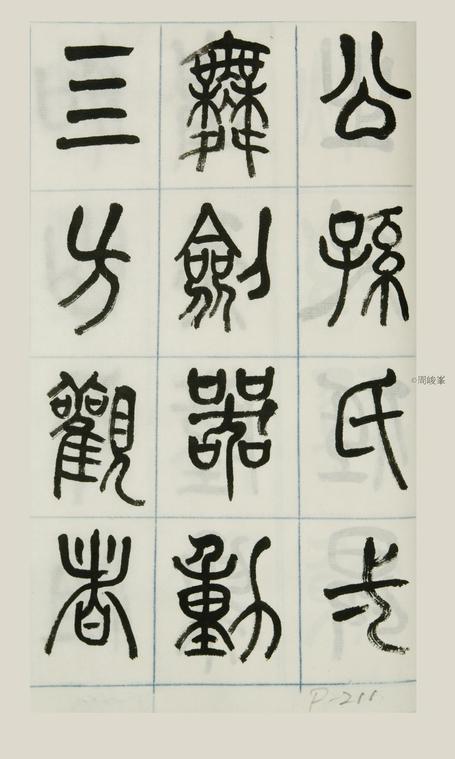 公孫氏
舞劍器動
三方觀者
P-211
©周峻峯